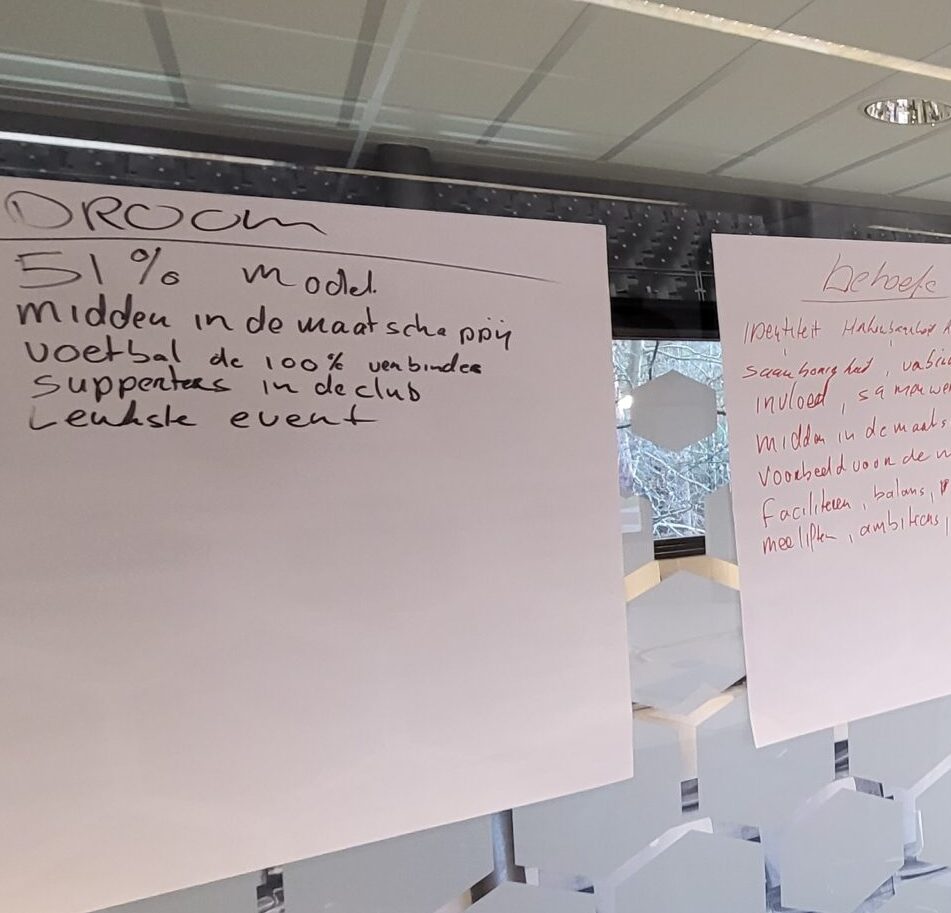 DROOM
51% model
midden in de maatschappij
voetbal de 100% verbinder
supporters in de club
Leukste event
behoefte
identiteit
invloed, samenwer
midden in de maats
voorbeeld voor de
faciliteren, balans,
meeliften, ambities,